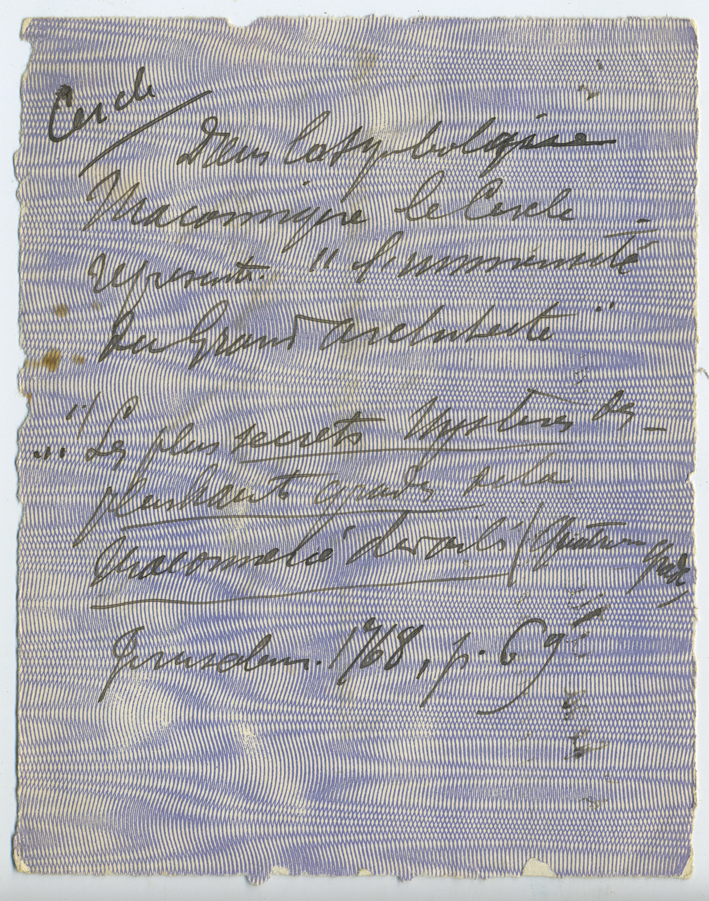 Cercle
Dans la symbolique
Maçonnique le Cercle
représente "l'immensité
du Grand Architecte"
..." Les plus secrets Mystères des
plus hauts grades de la
Maçonnerie dévoilés (
Jerusalem. 1768, p. 69